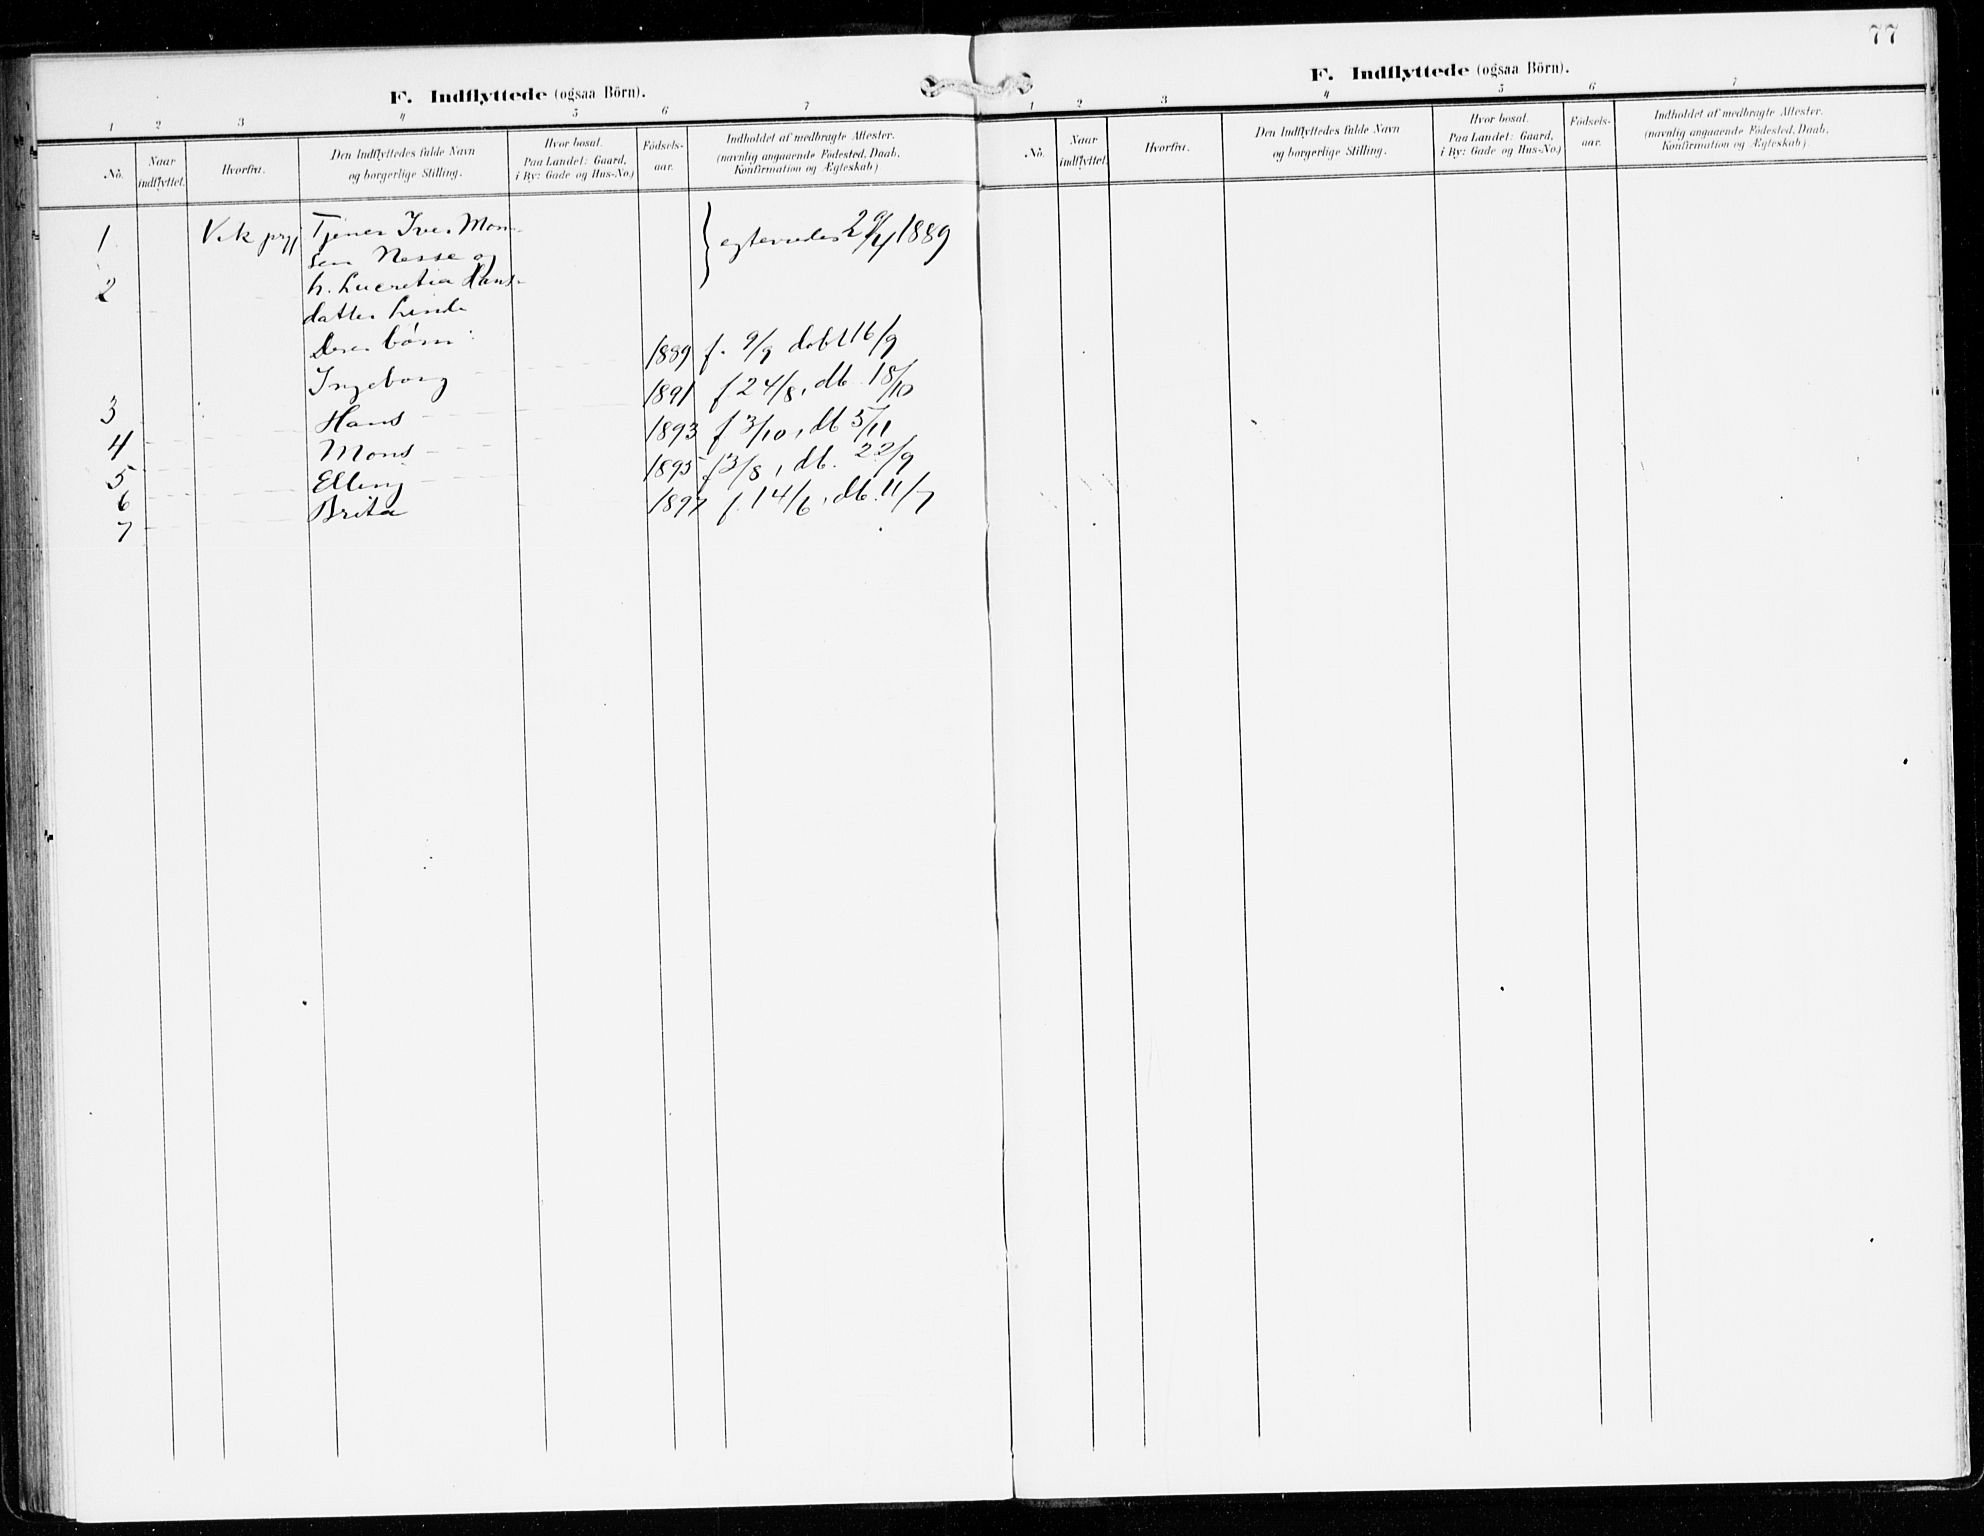 F. Indflyttede (ogsaa Börn).
1 2 3 4 5 6 7
No.
Naar indflyttet.
Hvorfra.
Den Indflyttedes fulde Navn
og borgerlige Stilling.
Hvor bosat.
Paa Landet: Gaard,
i By: Gade og Hus-No.)
Födsels-
aar.
Indholdet af medbragte Attester.
(navnlig angaaende Födested, Daab,
Konfirmation og Ægteskab)
1 Vik prgj Tjener Iver Mon-
sen Nesse og
egteviedes 1889
2 h. Lucretia Hans-
datter Linde
Deres børn:
Ingeborg 1889 f. 9/9 døbt 16/9
3 Hans 1891 f 24/8, db. 18/10
4 Mons 1893 f 3/10, db 5/11
5 Elling 1895 f 3/8, db. 22/9
6 Brita 1897 f. 14/6, db. 11/7
7
77
F. Indflyttede (ogsaa Börn).
1 2 3 4 5 6 7
No.
Naar
indflyttet.
Hvorfra.
Den Indflyttedes fulde Navn
og borgerlige Stilling.
Hvor bosat.
Paa Landet: Gaard,
i By: Gade og Hus-No.)
Födsels-
aar.
Indholdet af medbragte Attester.
(navnlig angaaende Födested, Daab,
Konfirmation og Ægteskab)